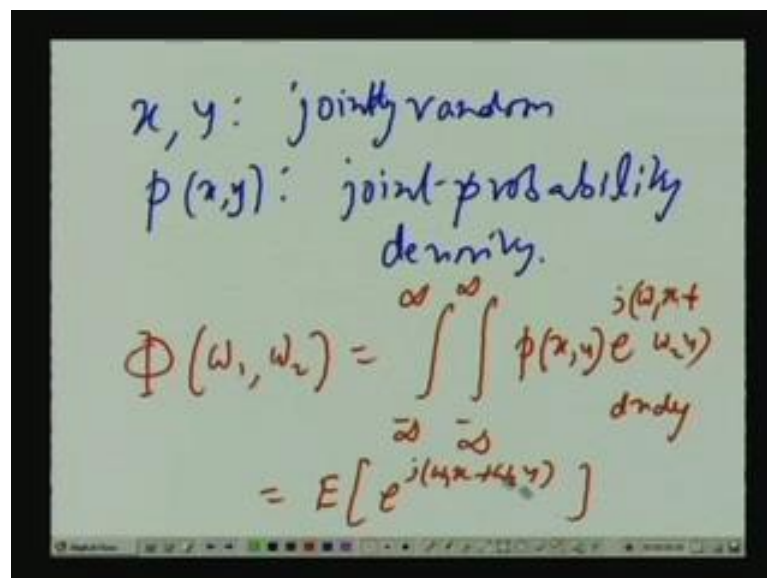 x, y: jointly random
p(x,y): joint-probability
density.
Φ(ω₁, ω₂) = ∫_{-∞}^{∞} ∫_{-∞}^{∞} p(x,y) e^{j(ω₁x+ω₂y)} dxdy
= E[e^{j(ω₁x+ω₂y)}]